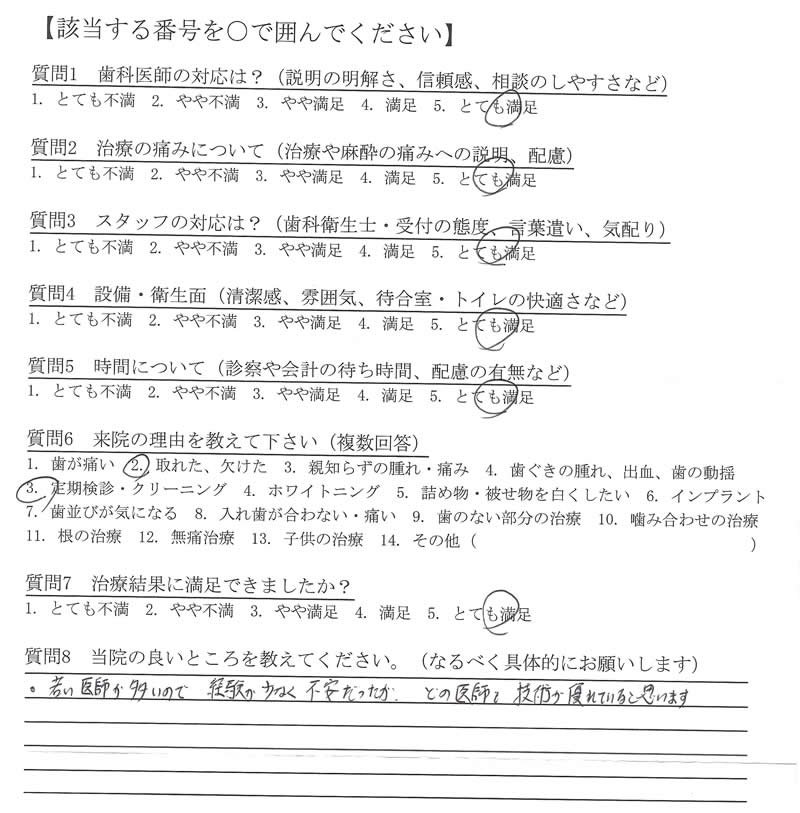 【該当する番号を〇で囲んでください】
質問1 歯科医師の対応は？（説明の明解さ、信頼感、相談のしやすさなど）
1. とても不満 2. やや不満 3. やや満足 4. 満足 5. とても満足
質問2 治療の痛みについて（治療や麻酔の痛みへの説明、配慮）
1. とても不満 2. やや不満 3. やや満足 4. 満足 5. とても満足
質問3 スタッフの対応は？（歯科衛生士・受付の態度、言葉遣い、気配り）
1. とても不満 2. やや不満 3. やや満足 4. 満足 5. とても満足
質問4 設備・衛生面（清潔感、雰囲気、待合室・トイレの快適さなど）
1. とても不満 2. やや不満 3. やや満足 4. 満足 5. とても満足
質問5 時間について（診察や会計の待ち時間、配慮の有無など）
1. とても不満 2. やや不満 3. やや満足 4. 満足 5. とても満足
質問6 来院の理由を教えて下さい（複数回答）
1. 歯が痛い 2. 取れた、欠けた 3. 親知らずの腫れ・痛み 4. 歯ぐきの腫れ、出血、歯の動揺
3. 定期検診・クリーニング 4. ホワイトニング 5. 詰め物・被せ物を白くしたい 6. インプラント
7. 歯並びが気になる 8. 入れ歯が合わない・痛い 9. 歯のない部分の治療 10. 噛み合わせの治療
11. 根の治療 12. 無痛治療 13. 子供の治療 14. その他（ ）
質問7 治療結果に満足できましたか？
1. とても不満 2. やや不満 3. やや満足 4. 満足 5. とても満足
質問8 当院の良いところを教えてください。（なるべく具体的にお願いします）
。若い医師が多いので 経験が少なく不安だったが、 どの医師も 技術が優れていると思います